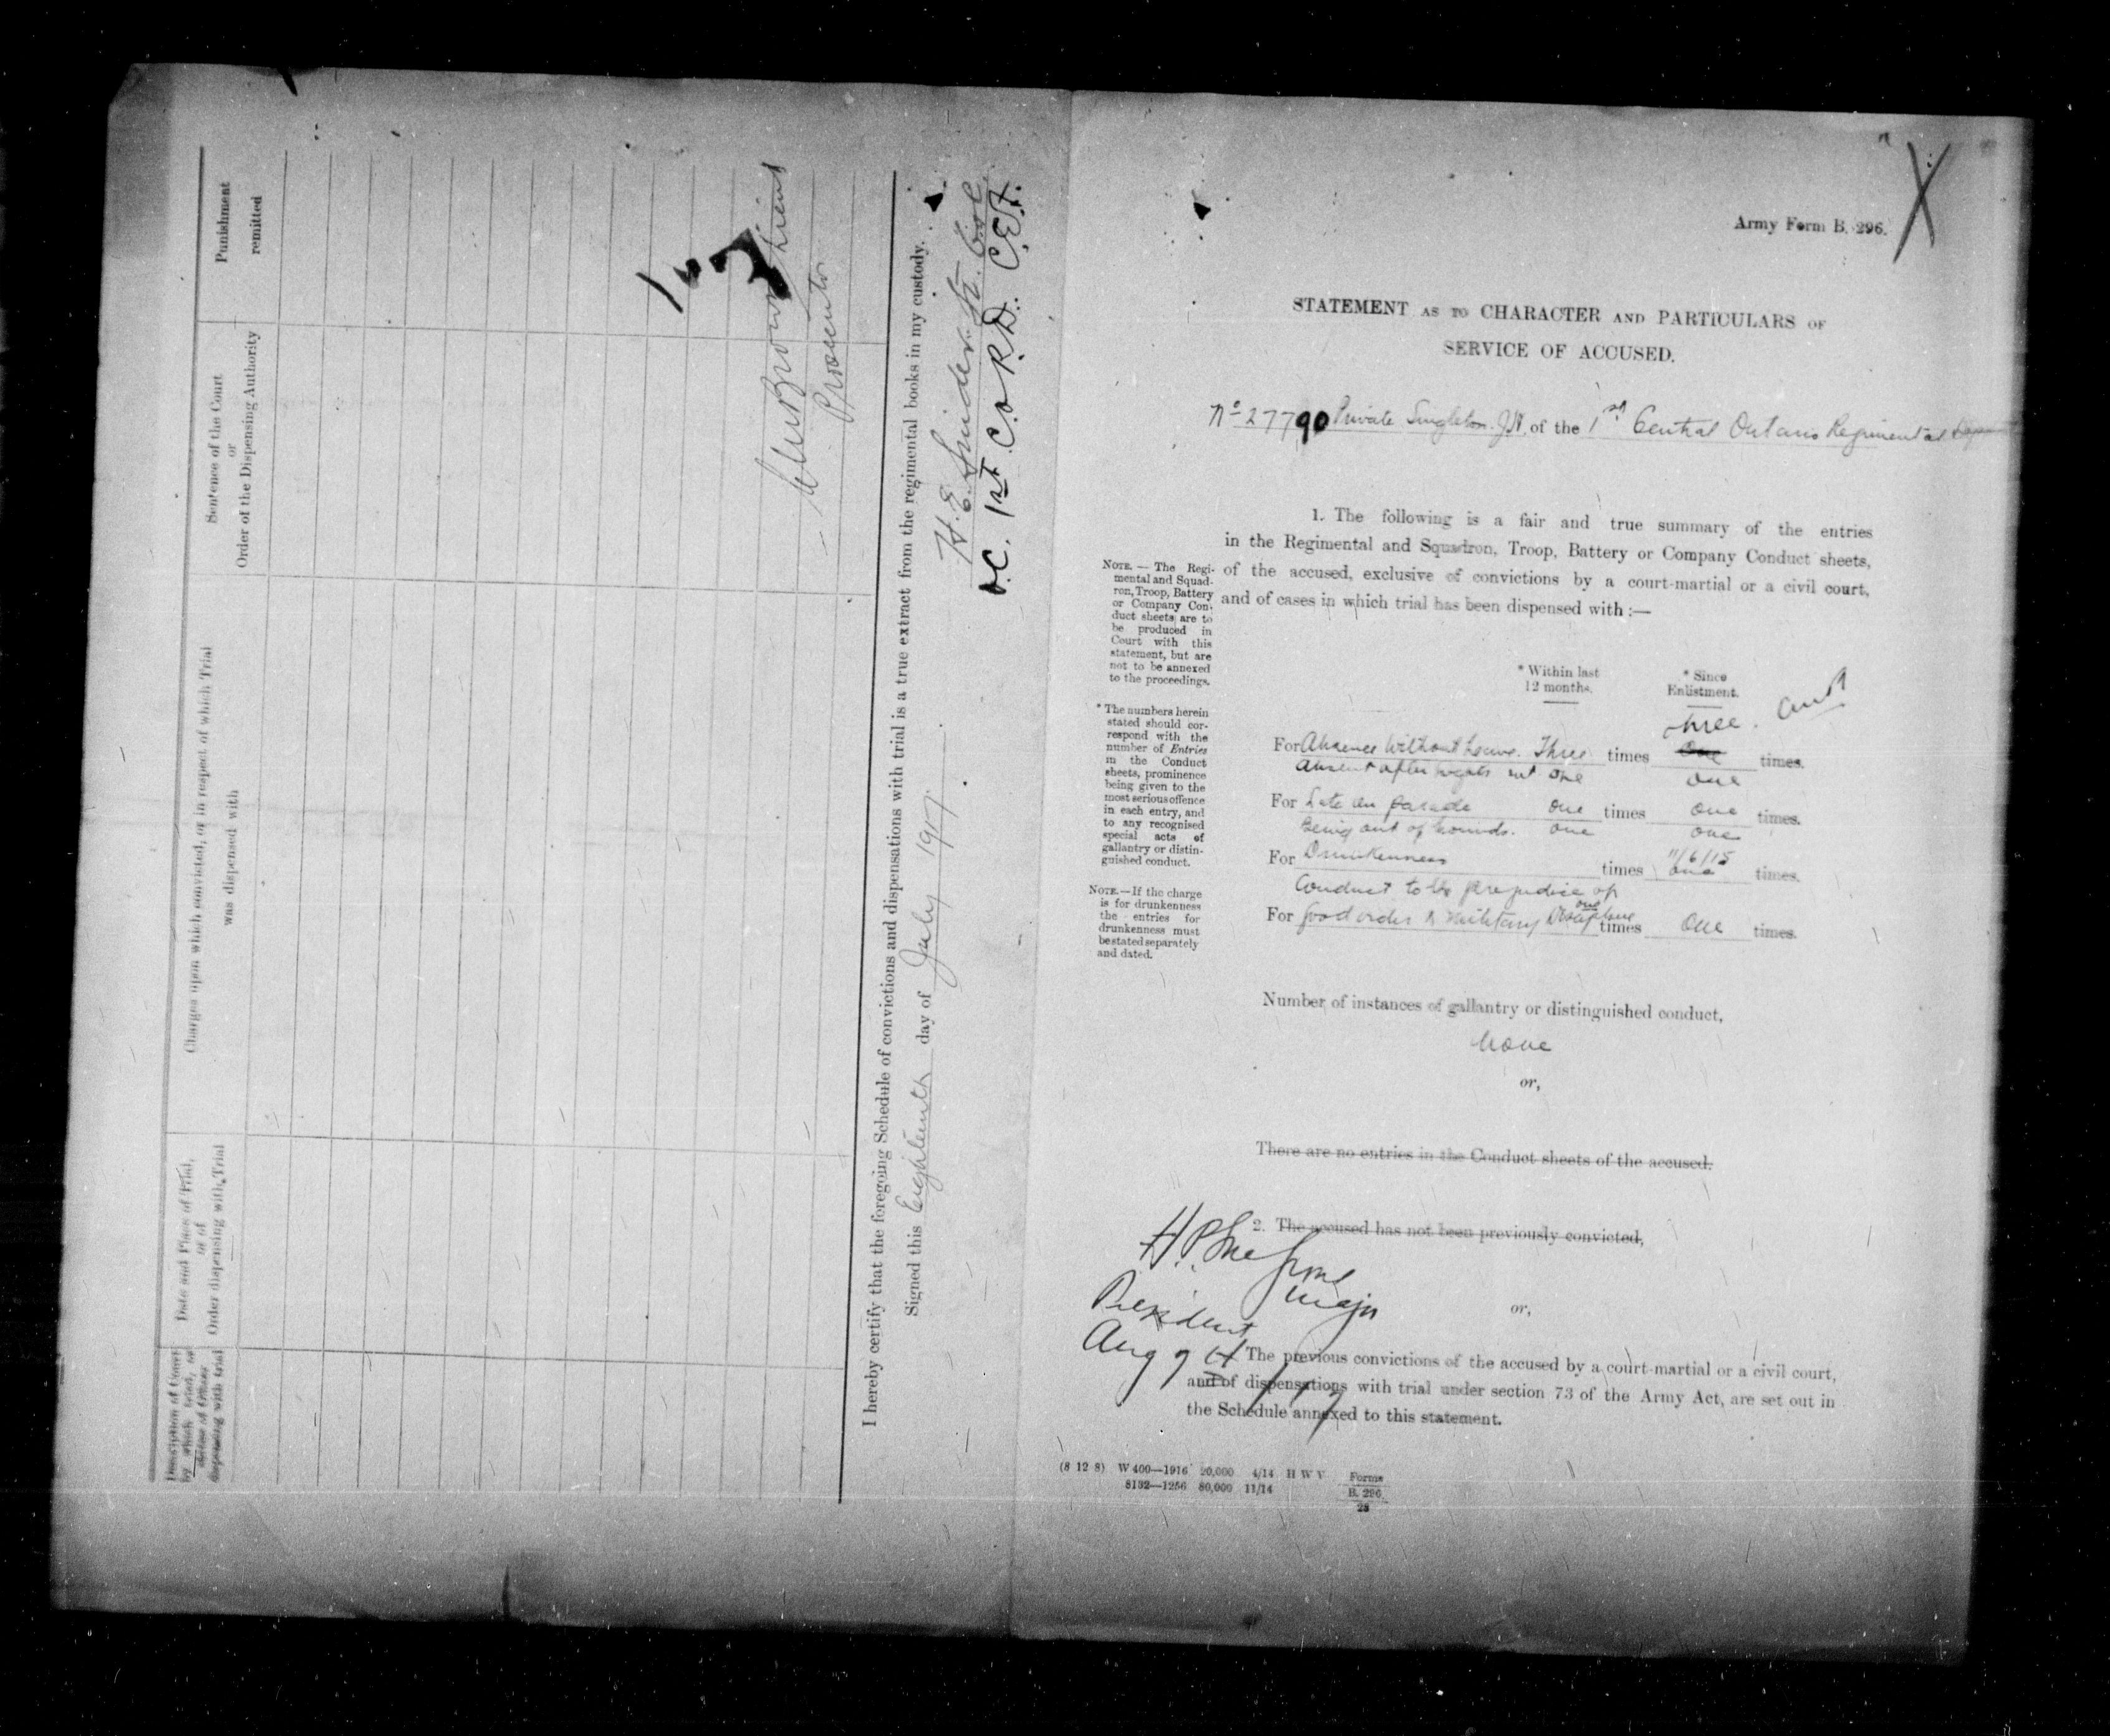 Punishment
remitted
Sentence of the Court
or
Order of the Dispensing Authority
Charges upon which convicted, or in respect of which Trial
was dispensed with
Date and Place of Trial,
or of
Order dispensing with Trial
Description of Court
by which tried, or
dispensing with trial
Lieut
Prosecutor
I hereby certify that the foregoing Schedule of convictions and dispensations with trial is a true extract from the regimental books in my custody.
Signed this Eighteenth day of July 1917.
H. E. Snider Lt. Col
O.C. 1st C.O.R.D. C.E.F.
X
Army Form B. 296.
STATEMENT AS TO CHARACTER AND PARTICULARS OF
SERVICE OF ACCUSED.
No 27790 Private Singleton. J.W. of the 1st Central Ontario Regimental Depot
1. The following is a fair and true summary of the entries
in the Regimental and Squadron, Troop, Battery or Company Conduct sheets,
of the accused, exclusive of convictions by a court-martial or a civil court,
and of cases in which trial has been dispensed with :—
NOTE. — The Regi-
mental and Squad-
ron, Troop, Battery
or Company Con-
duct sheets are to
be produced in
Court with this
statement, but are
not to be annexed
to the proceedings.
* The numbers herein
stated should cor-
respond with the
number of Entries
in the Conduct
sheets, prominence
being given to the
most serious offence
in each entry, and
to any recognised
special acts of
gallantry or distin-
guished conduct.
NOTE.—If the charge
is for drunkenness
the entries for
drunkenness must
be stated separately
and dated.
* Within last
12 months.
* Since
Enlistment.
three.
For Absence Without Leave. Three times One times.
Absent after lights out One one
For Late on parade one times one times.
Being out of bounds. one one
For Drunkenness times 11/6/15 one times.
Conduct to the prejudice of
For good order & Military Discipline one times One times.
Number of instances of gallantry or distinguished conduct,
None
or,
There are no entries in the Conduct sheets of the accused.
2. The accused has not been previously convicted,
Major
President
or,
Aug 7th / 17
The previous convictions of the accused by a court-martial or a civil court,
and of dispensations with trial under section 73 of the Army Act, are set out in
the Schedule annexed to this statement.
(8 12 8) W 400—1916 20,000 4/14 H W V Forms
8132—1256 80,000 11/14 B. 296
28